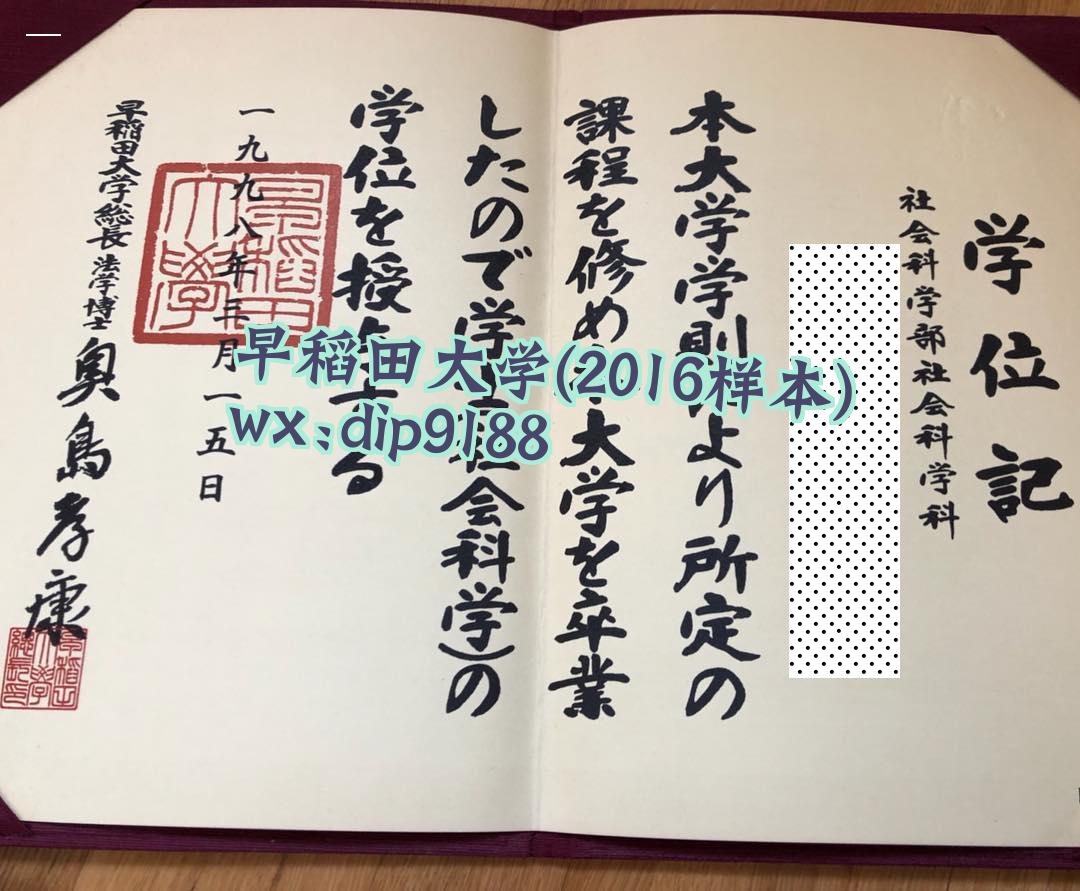 学位記
社会科学部社会科学科
本大学学則により所定の
課程を修め大学を卒業
したので学士(社会科学)の
学位を授与する
一九九八年三月一五日
早稲田大学総長 法学博士 奥島孝康
早稲田大學
早稲田大學総長印
早稲田大学(2016样本)
wx:dip9188